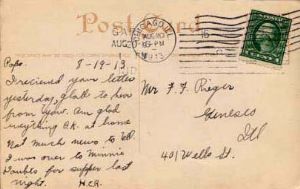 Post Card
CHICAGO, ILL.
AUG 20
1913
8-19-13
Papa.
I recieved your letter
yesterday, glad to hear
from you. Am glad
everything O.K. at home
Not much news to tell.
I was over to Minnie
Doubles for supper last
night. H.E.R.
Mr F. F. Rieger
Geneseo
Ill
401 Wells St.